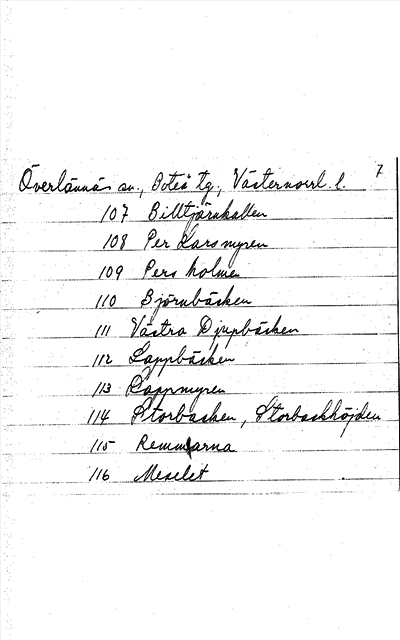 Överlännäs sn., Boteå tg., Västernorrl. l. 7
107 Billtjärnkallen
108 Per Larsmyren
109 Pers holme
110 Björnbäcken
111 Västra Djupbäcken
112 Lappbäcken
113 Lappmyren
114 Storbacken, Storbackhöjden
115 Remmarna
116 Meselet